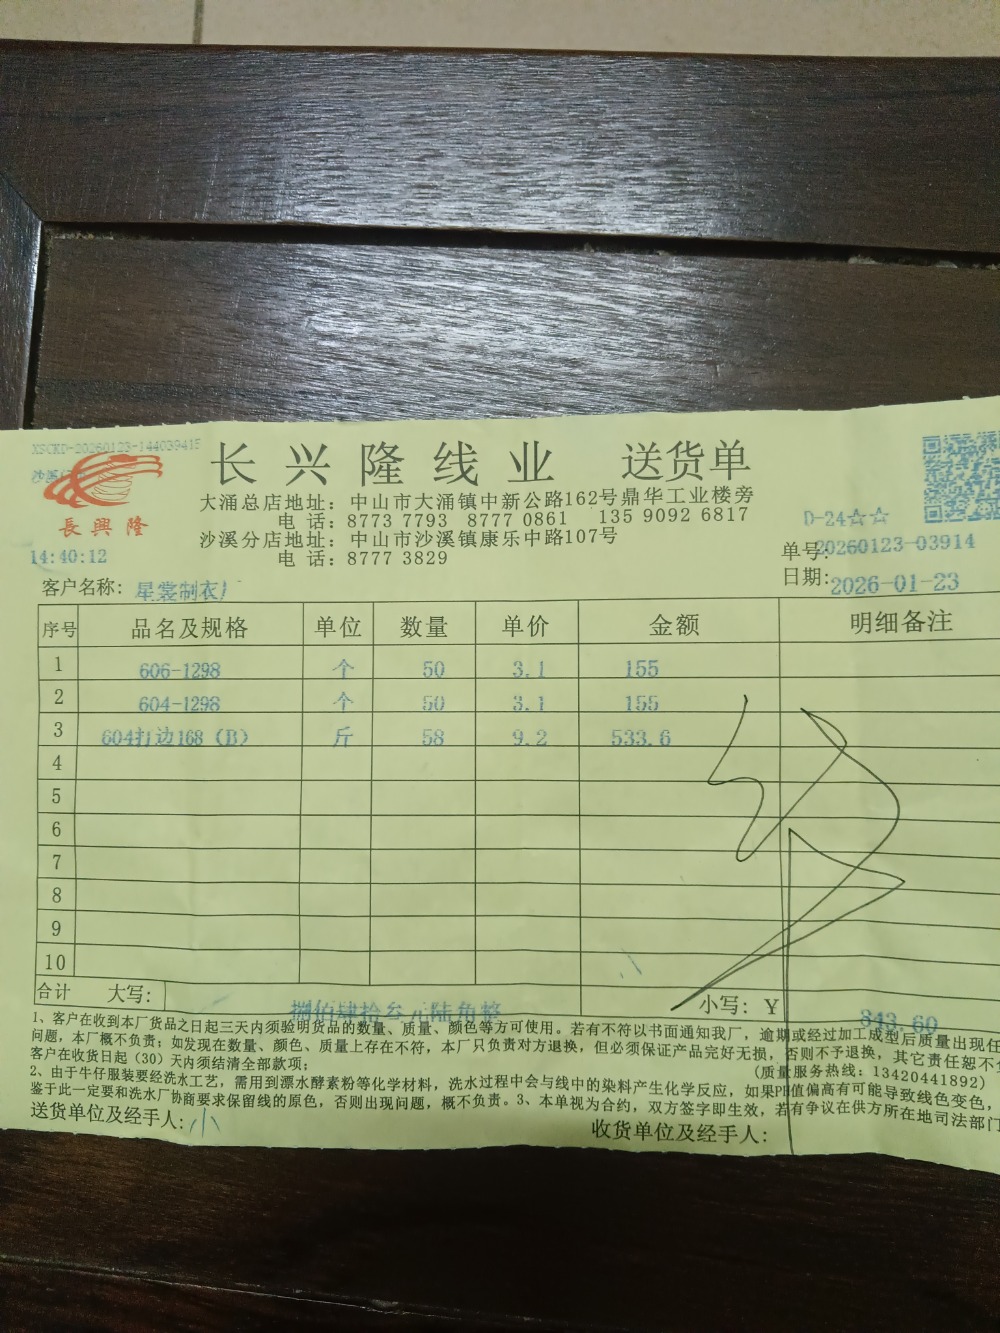 XSCKD-20260123-144039415
长兴隆线业 送货单
長興隆
大涌总店地址：中山市大涌镇中新公路162号鼎华工业楼旁
电 话：8773 7793 8777 0861 135 9092 6817
沙溪分店地址：中山市沙溪镇康乐中路107号
电 话：8777 3829
D-24☆☆
14:40:12
单号：20260123-03914
日期：2026-01-23
客户名称：星裳制衣厂
序号 品名及规格 单位 数量 单价 金额 明细备注
1 606-1298 个 50 3.1 155
2 604-1298 个 50 3.1 155
3 604打边168（B） 斤 58 9.2 533.6
4
5
6
7
8
9
10
合计 大写： 捌佰肆拾叁元陆角整 小写：￥ 843.60
1、客户在收到本厂货品之日起三天内须验明货品的数量、质量、颜色等方可使用。若有不符以书面通知我厂，逾期或经过加工成型后质量出现任
问题，本厂概不负责；如发现在数量、颜色、质量上存在不符，本厂只负责对方退换，但必须保证产品完好无损，否则不予退换，其它责任恕不
客户在收货日起（30）天内须结清全部款项； （质量服务热线：13420441892）
2、由于牛仔服装要经洗水工艺，需用到漂水酵素粉等化学材料，洗水过程中会与线中的染料产生化学反应，如果PH值偏高有可能导致线色变色，
鉴于此一定要和洗水厂协商要求保留线的原色，否则出现问题，概不负责。3、本单视为合约，双方签字即生效，若有争议在供方所在地司法部门
送货单位及经手人：小
收货单位及经手人：